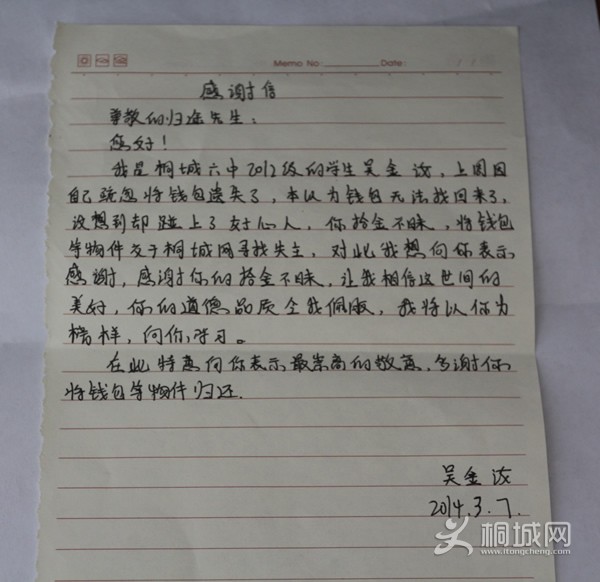 Memo No: Date: / /
感谢信
尊敬的归途先生：
您好！
我是桐城六中2012级的学生吴金 ，上周因
自己疏忽将钱包遗失了，本以为钱包无法找回来了，
没想到却碰上了好心人，你拾金不昧，将钱包
等物件交于桐城网寻找失主，对此我想向你表示
感谢，感谢你的拾金不昧，让我相信这世间的
美好，你的道德品质令我佩服，我将以你为
榜样，向你学习。
在此特意向你表示最崇高的敬意，多谢你
将钱包等物件归还.
吴金
2014.3.7.
桐城网
www.itongcheng.com